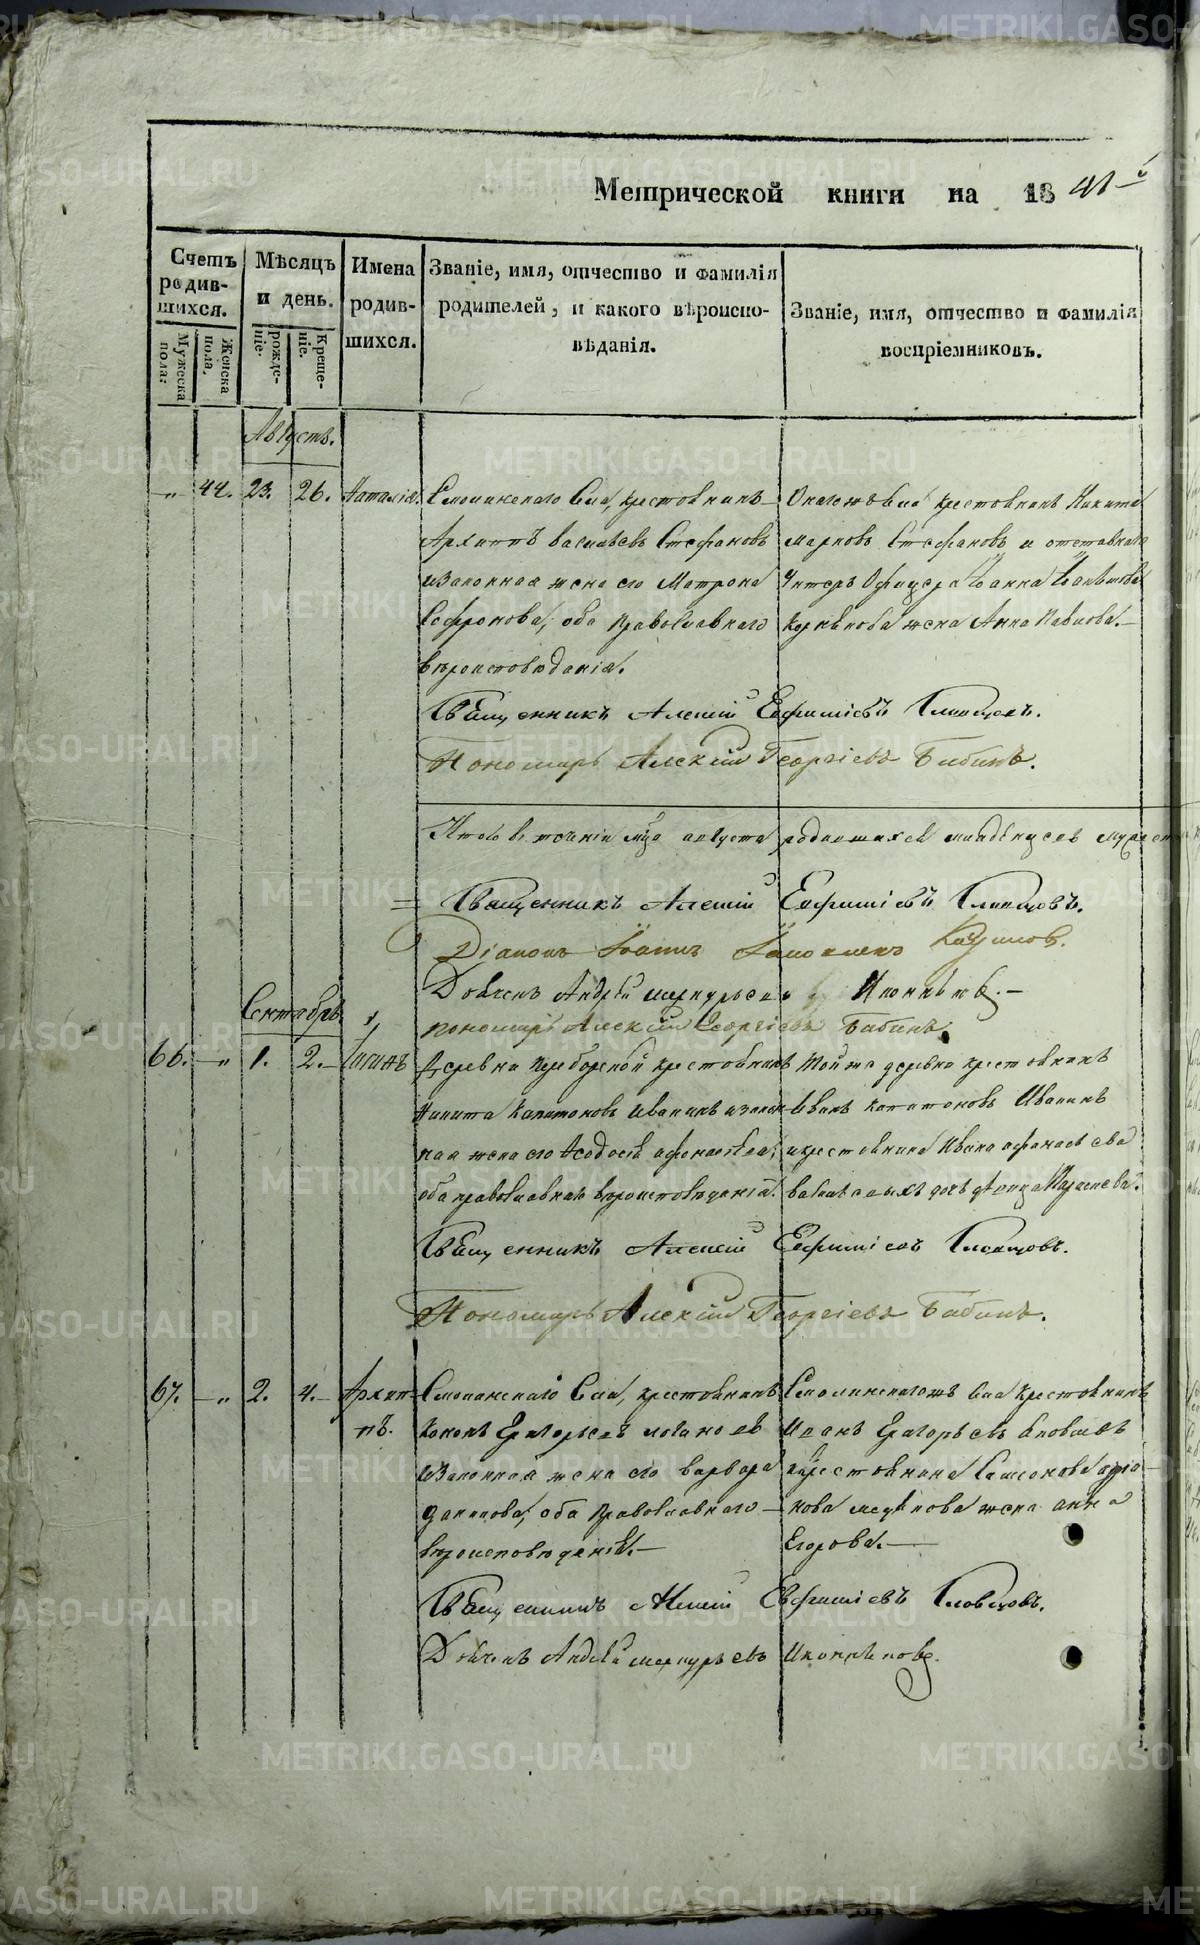 Метрической книги на 1841й
Счетъ родившихся.
Мѣсяцъ и день.
Имена родившихся.
Званіе, имя, отчество и фамилія родителей, и какого вѣроисповѣданія.
Званіе, имя, отчество и фамилія воспріемниковъ.
Мужеска пола:
Женска пола.
рожденіе.
Крещеніе.
Августъ.
" 44. 23. 26. Наталія.
Смолинскаго Села, крестьянинъ
Архиппъ Васильевъ Стефановъ
и законная жена его Матрона
Софронова, оба православнаго
вѣроисповѣданія.
Онагожъ села крестьянинъ Никита
Марковъ Стефановъ и отставнаго
Унтеръ Офицера Іоанна
жена Анна Павлова.
Священникъ Алексій Евфиміевъ Словцовъ.
Пономарь Алексій Георгіевъ Бабинъ.
Итого въ теченіи мца августа родившихся младенцевъ
Священникъ Алексій Евфиміевъ Словцовъ.
Діаконъ Іоаннъ
Дьячекъ Андрей Меркурьевъ Иконниковъ.
Пономарь Алексій Георгіевъ Бабинъ.
Сентябрь
66. " 1. 2.
Деревни Переборской крестьянинъ
Никита Капитоновъ Иванинъ и закон
ная жена его Ѳеодосія Афонасьева,
оба православнаго вѣроисповѣданія.
Той же деревни крестьянинъ
Иванъ Капитоновъ Иванинъ
и крестьянина Ивана Афанасьева
дочь
Священникъ Алексій Евфиміевъ Словцовъ.
Пономарь Алексій Георгіевъ Бабинъ.
67. " 2. 4. Архип
пъ.
Смолинскаго Села, крестьянинъ
Кононъ Григорьевъ
и законная жена его Варвара
Данилова, оба православнаго
вѣроисповѣданія.
Смолинскагожъ Села крестьянинъ
Иванъ Григорьевъ
и крестьянина
жена Анна
Егорова.
Священникъ Алексій Евфиміевъ Словцовъ.
Дьячекъ Андрей Меркурьевъ Иконниковъ.
METRIKI.GASO-URAL.RU